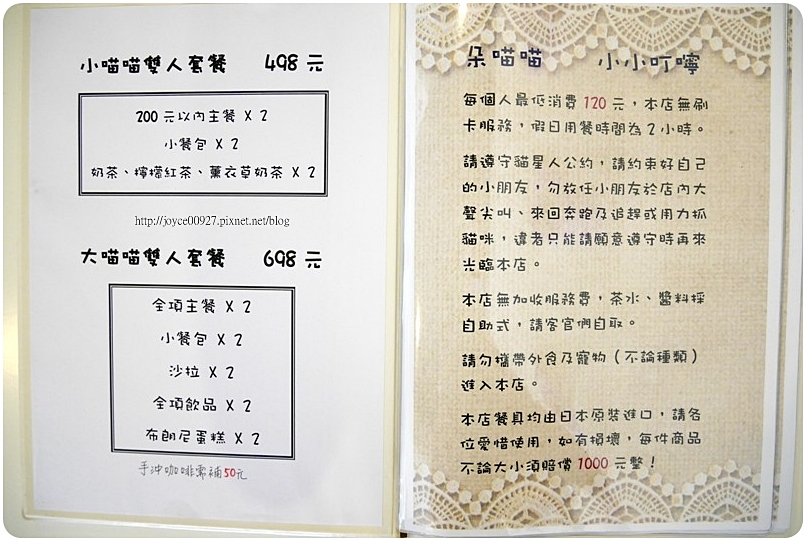 小喵喵雙人套餐 498 元
200 元以內主餐 X 2
小餐包 X 2
奶茶、檸檬紅茶、薰衣草奶茶 X 2
http://joyce00927.pixnet.net/blog
大喵喵雙人套餐 698 元
全項主餐 X 2
小餐包 X 2
沙拉 X 2
全項飲品 X 2
布朗尼蛋糕 X 2
手沖咖啡需補50元
朵喵喵 小小叮嚀
每個人最低消費 120 元，本店無刷
卡服務，假日用餐時間為 2 小時。
請遵守貓星人公約，請約束好自己
的小朋友，勿放任小朋友於店內大
聲尖叫、來回奔跑及追趕或用力抓
貓咪，違者只能請願意遵守時再來
光臨本店。
本店無加收服務費，茶水、醬料採
自助式，請客官們自取。
請勿攜帶外食及寵物（不論種類）
進入本店。
本店餐具均由日本原裝進口，請各
位愛惜使用，如有損壞，每件商品
不論大小須賠償 1000 元整！